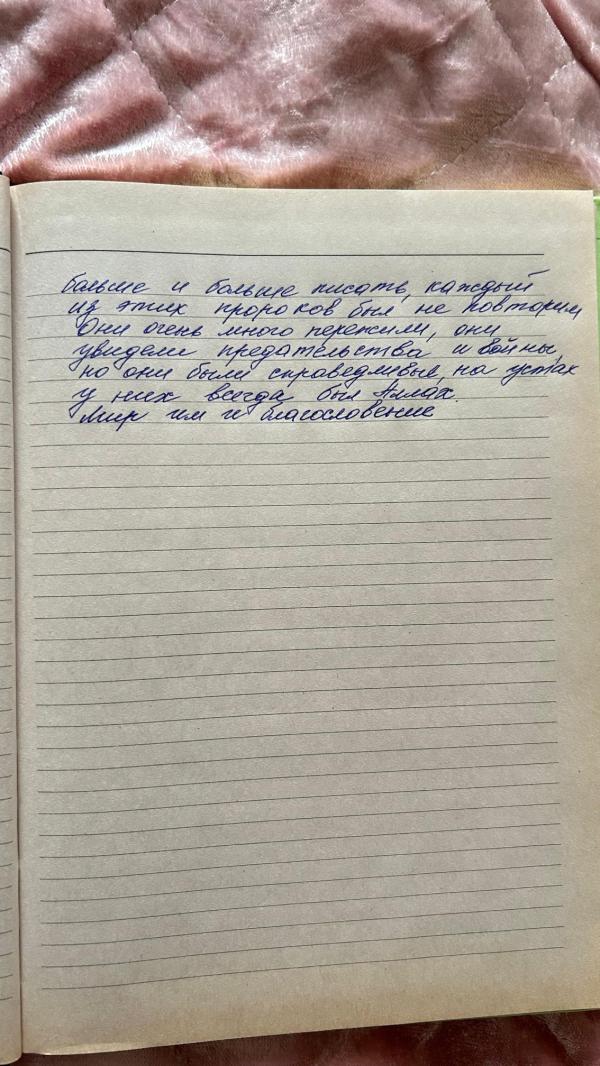 больше и больше писать, каждый
из этих пророков был не повторим
Они очень много пережили, они
увидели предательства и войны,
но они были справедливые, на устах
у них всегда был Аллах.
Мир им и благословение